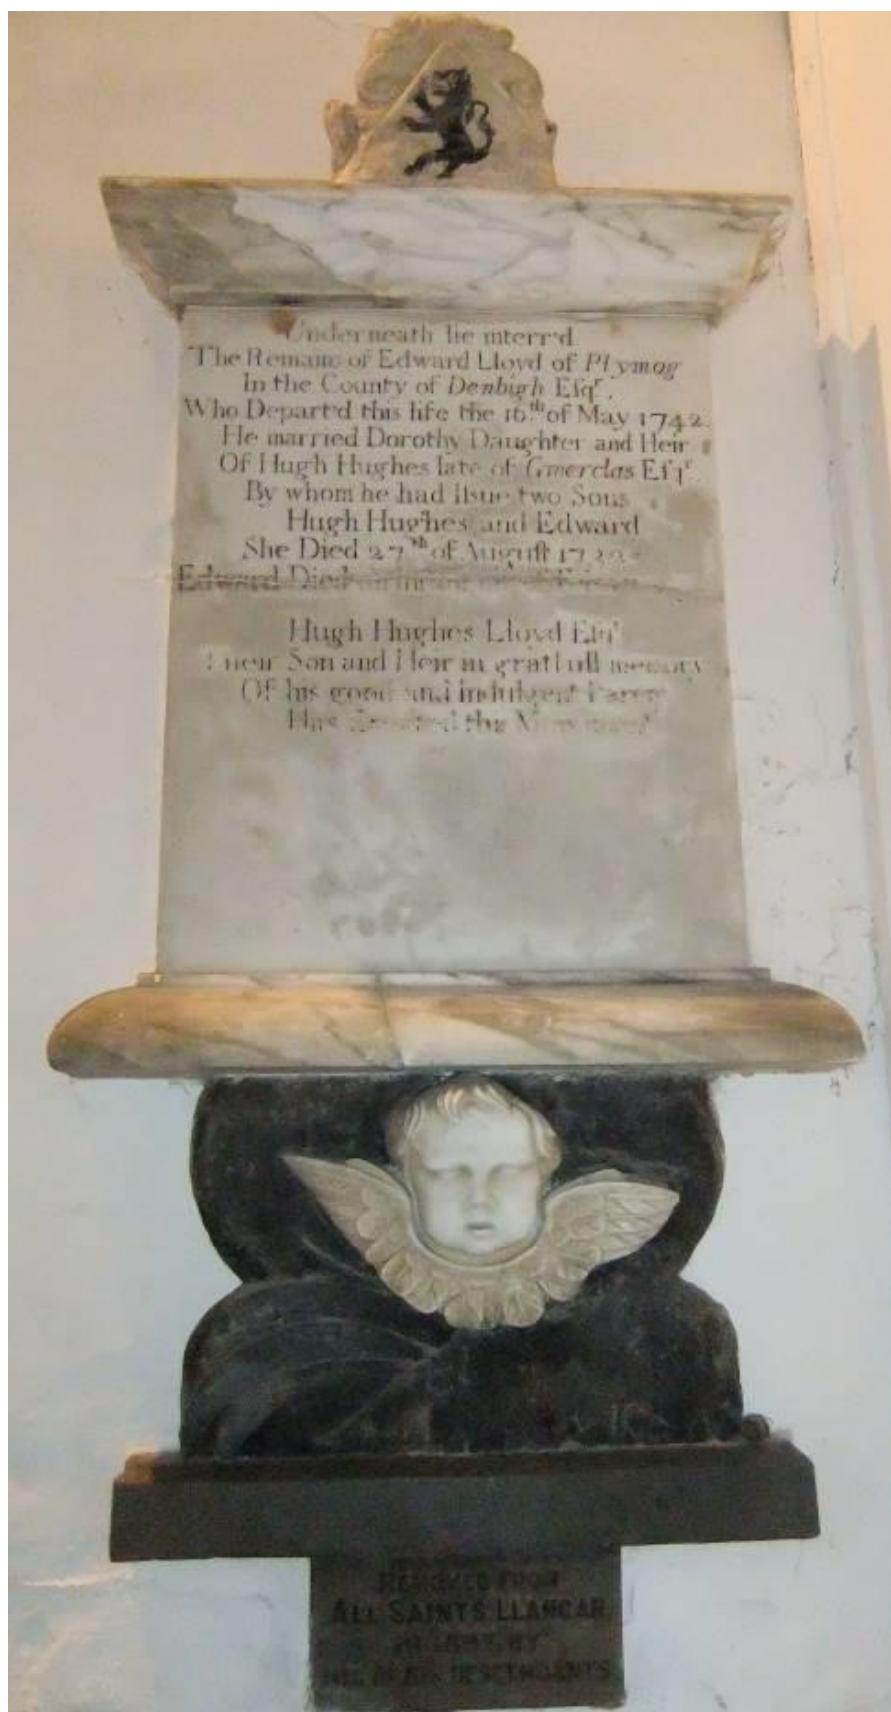 Underneath lie interr'd
The Remains of Edward Lloyd of Plymog
In the County of Denbigh Esqʳ.
Who Depart'd this life the 16ᵗʰ of May 1742.
He married Dorothy Daughter and Heir
Of Hugh Hughes late of Gwerclas Esqʳ
By whom he had issue two Sons
Hugh Hughes and Edward
She Died 27ᵗʰ of August
Edward Died
Hugh Hughes Lloyd Esqʳ
Their Son and Heir in gratfull memory
Of his good and indulgent
Has Erected this Monument
REMOVED FROM
ALL SAINTS LLANGAR
BY
DESCENDANTS